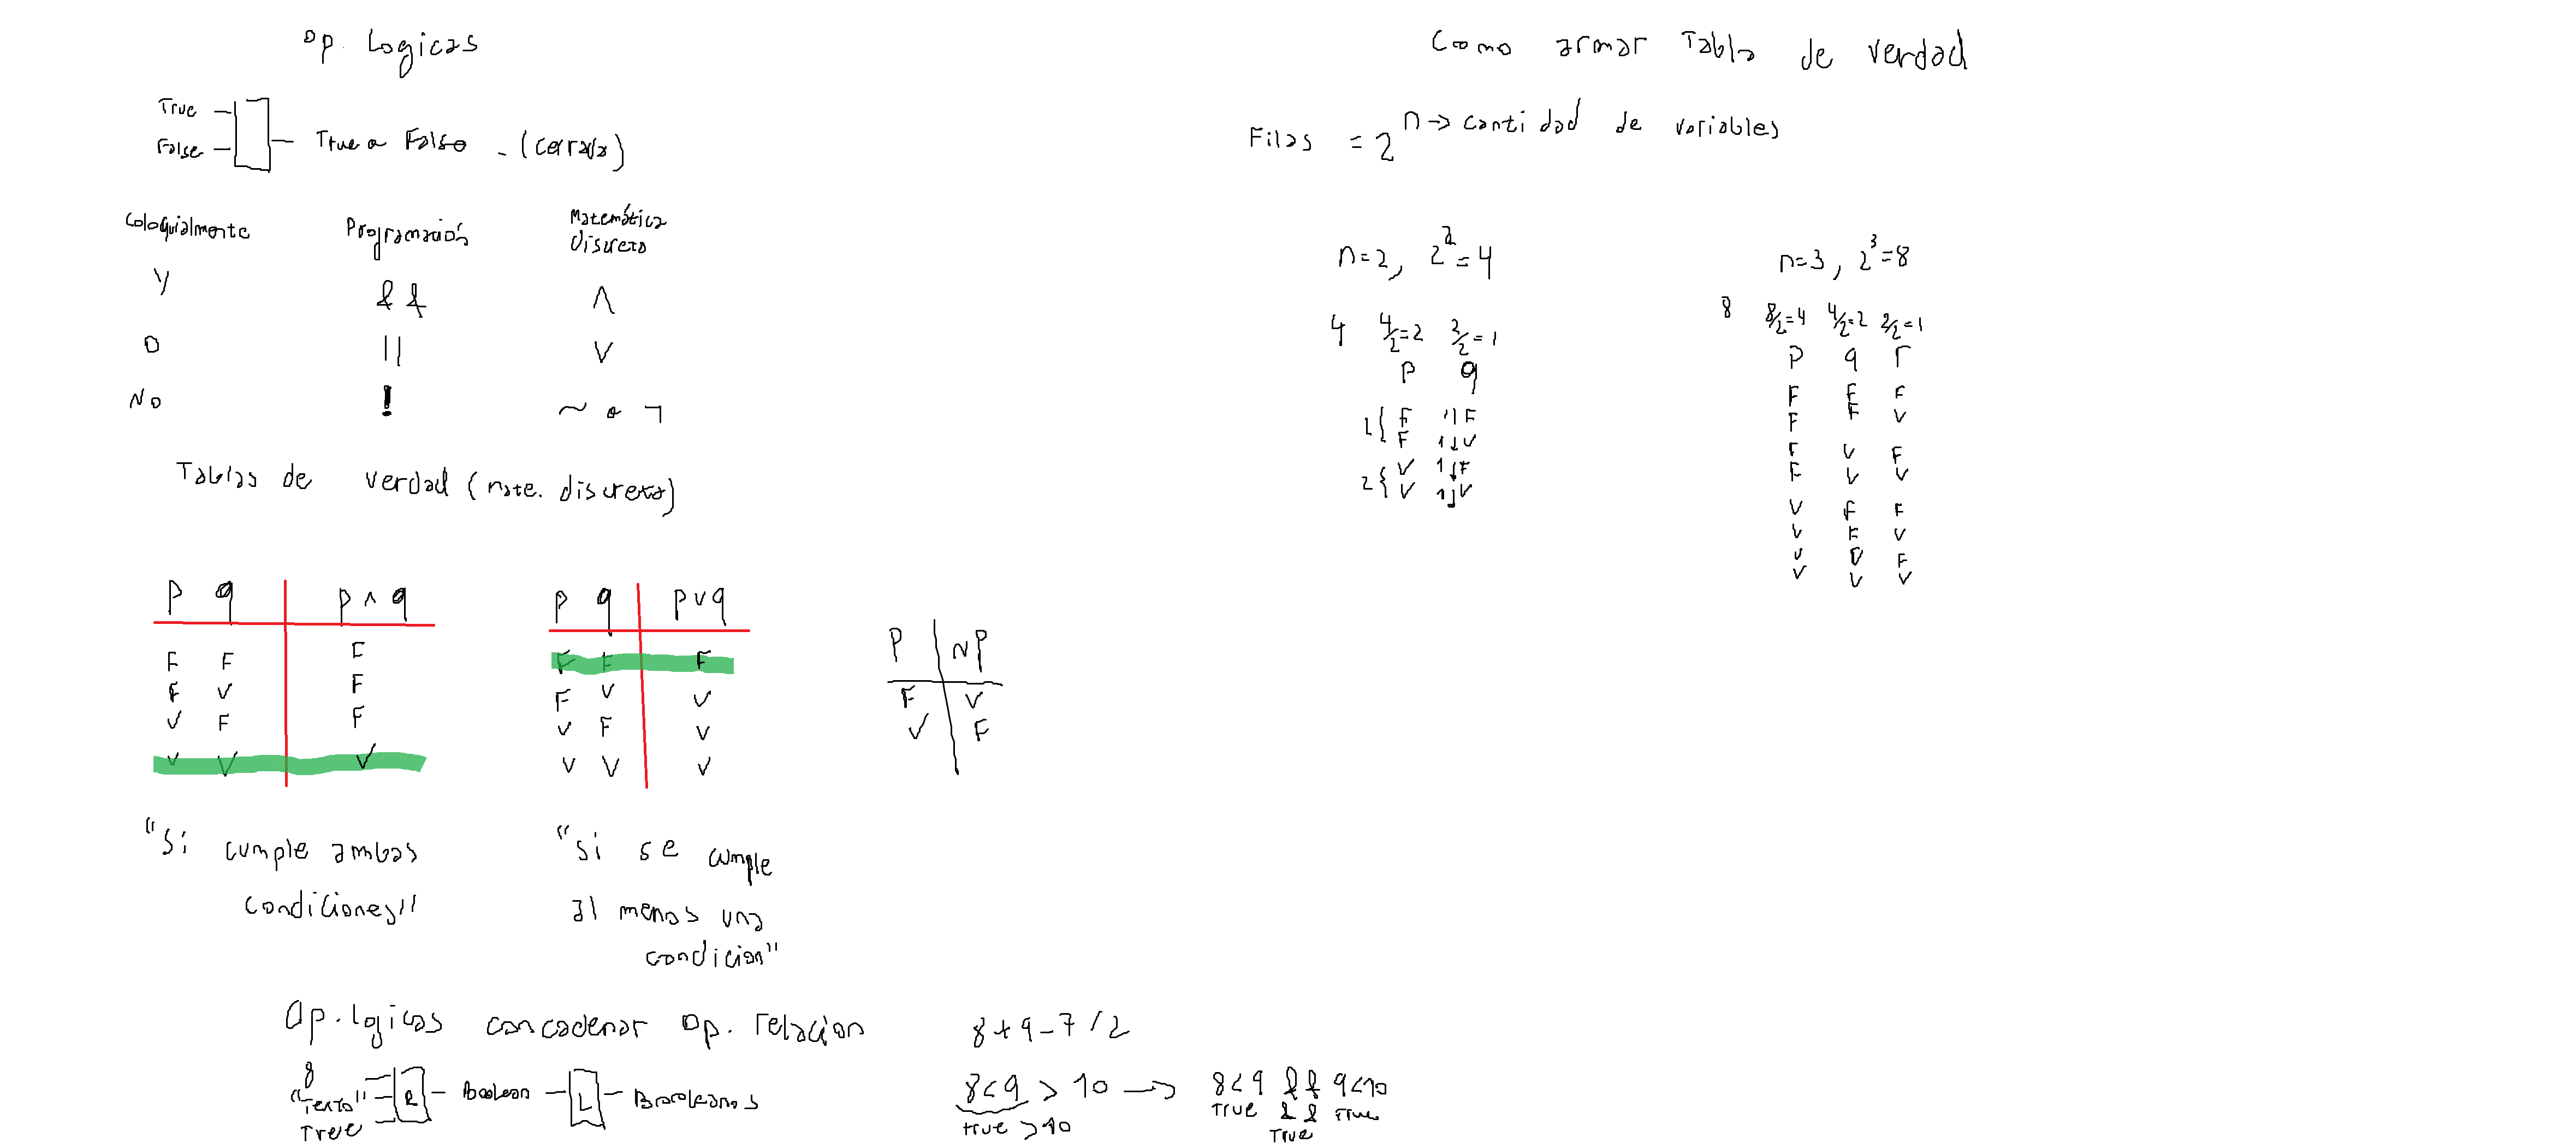 Op. Logicas
True
False
True o Falso - (cerrada)
Coloquialmente Programación Matemática discreta
Y && ∧
O || ∨
No ! ~ o ¬
Tablas de verdad (mate. discreta)
p q p ∧ q
F F F
F V F
V F F
V V V
"Si cumple ambas
condiciones"
p q p ∨ q
F F F
F V V
V F V
V V V
"Si se cumple
al menos una
condicion"
P ~P
F V
V F
Op. logicas concadenar op. relacion
8
"Texto"
True
R Boolean L Booleanos
8 + 9 - 7 / 2
8 < 9 > 10 → 8 < 9 && 9 < 10
true > 10
True && True
True
Como armar Tabla de verdad
Filas = 2^n → cantidad de variables
n=2, 2^2=4
4 4/2=2 2/2=1
p q
2{ F 1 F
F 1 V
2{ V 1 F
V 1 V
n=3, 2^3=8
8 8/2=4 4/2=2 2/2=1
p q r
F F F
F F V
F V F
F V V
V F F
V F V
V V F
V V V